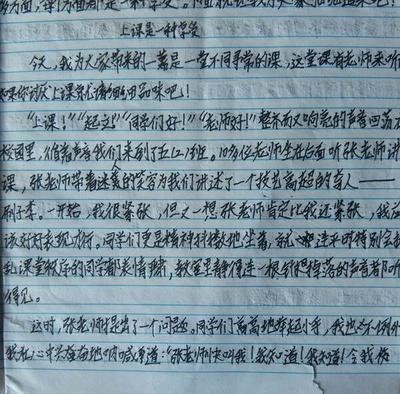 上课是一种享受
今天，我为大家带来的一篇是一堂不同寻常的课，这堂课有老师来听
如果你讨厌上课就请细细品味吧！
“上课！”“起立！”“同学们好！”“老师好！”整齐而又响亮的声音回荡在
校园里，循着声音我们来到了五(2)班。10多位老师坐在后面听张老师讲
课，张老师带着迷人的笑容为我们讲述了一个技艺高超的盲人——
刷子李。一开始，我很紧张，但又一想张老师肯定比我还紧张，我应
该好好表现才行。同学们更是精神抖擞地坐着，就连平时特别会扰
乱课堂秩序的同学都表情严肃，教室里静得连一根针掉落的声音都听
得见。
这时，张老师提出了一个问题。同学们高高地举起小手，我也不例外
我在心中兴奋地呐喊道：“张老师快叫我！我知道！我知道！令我